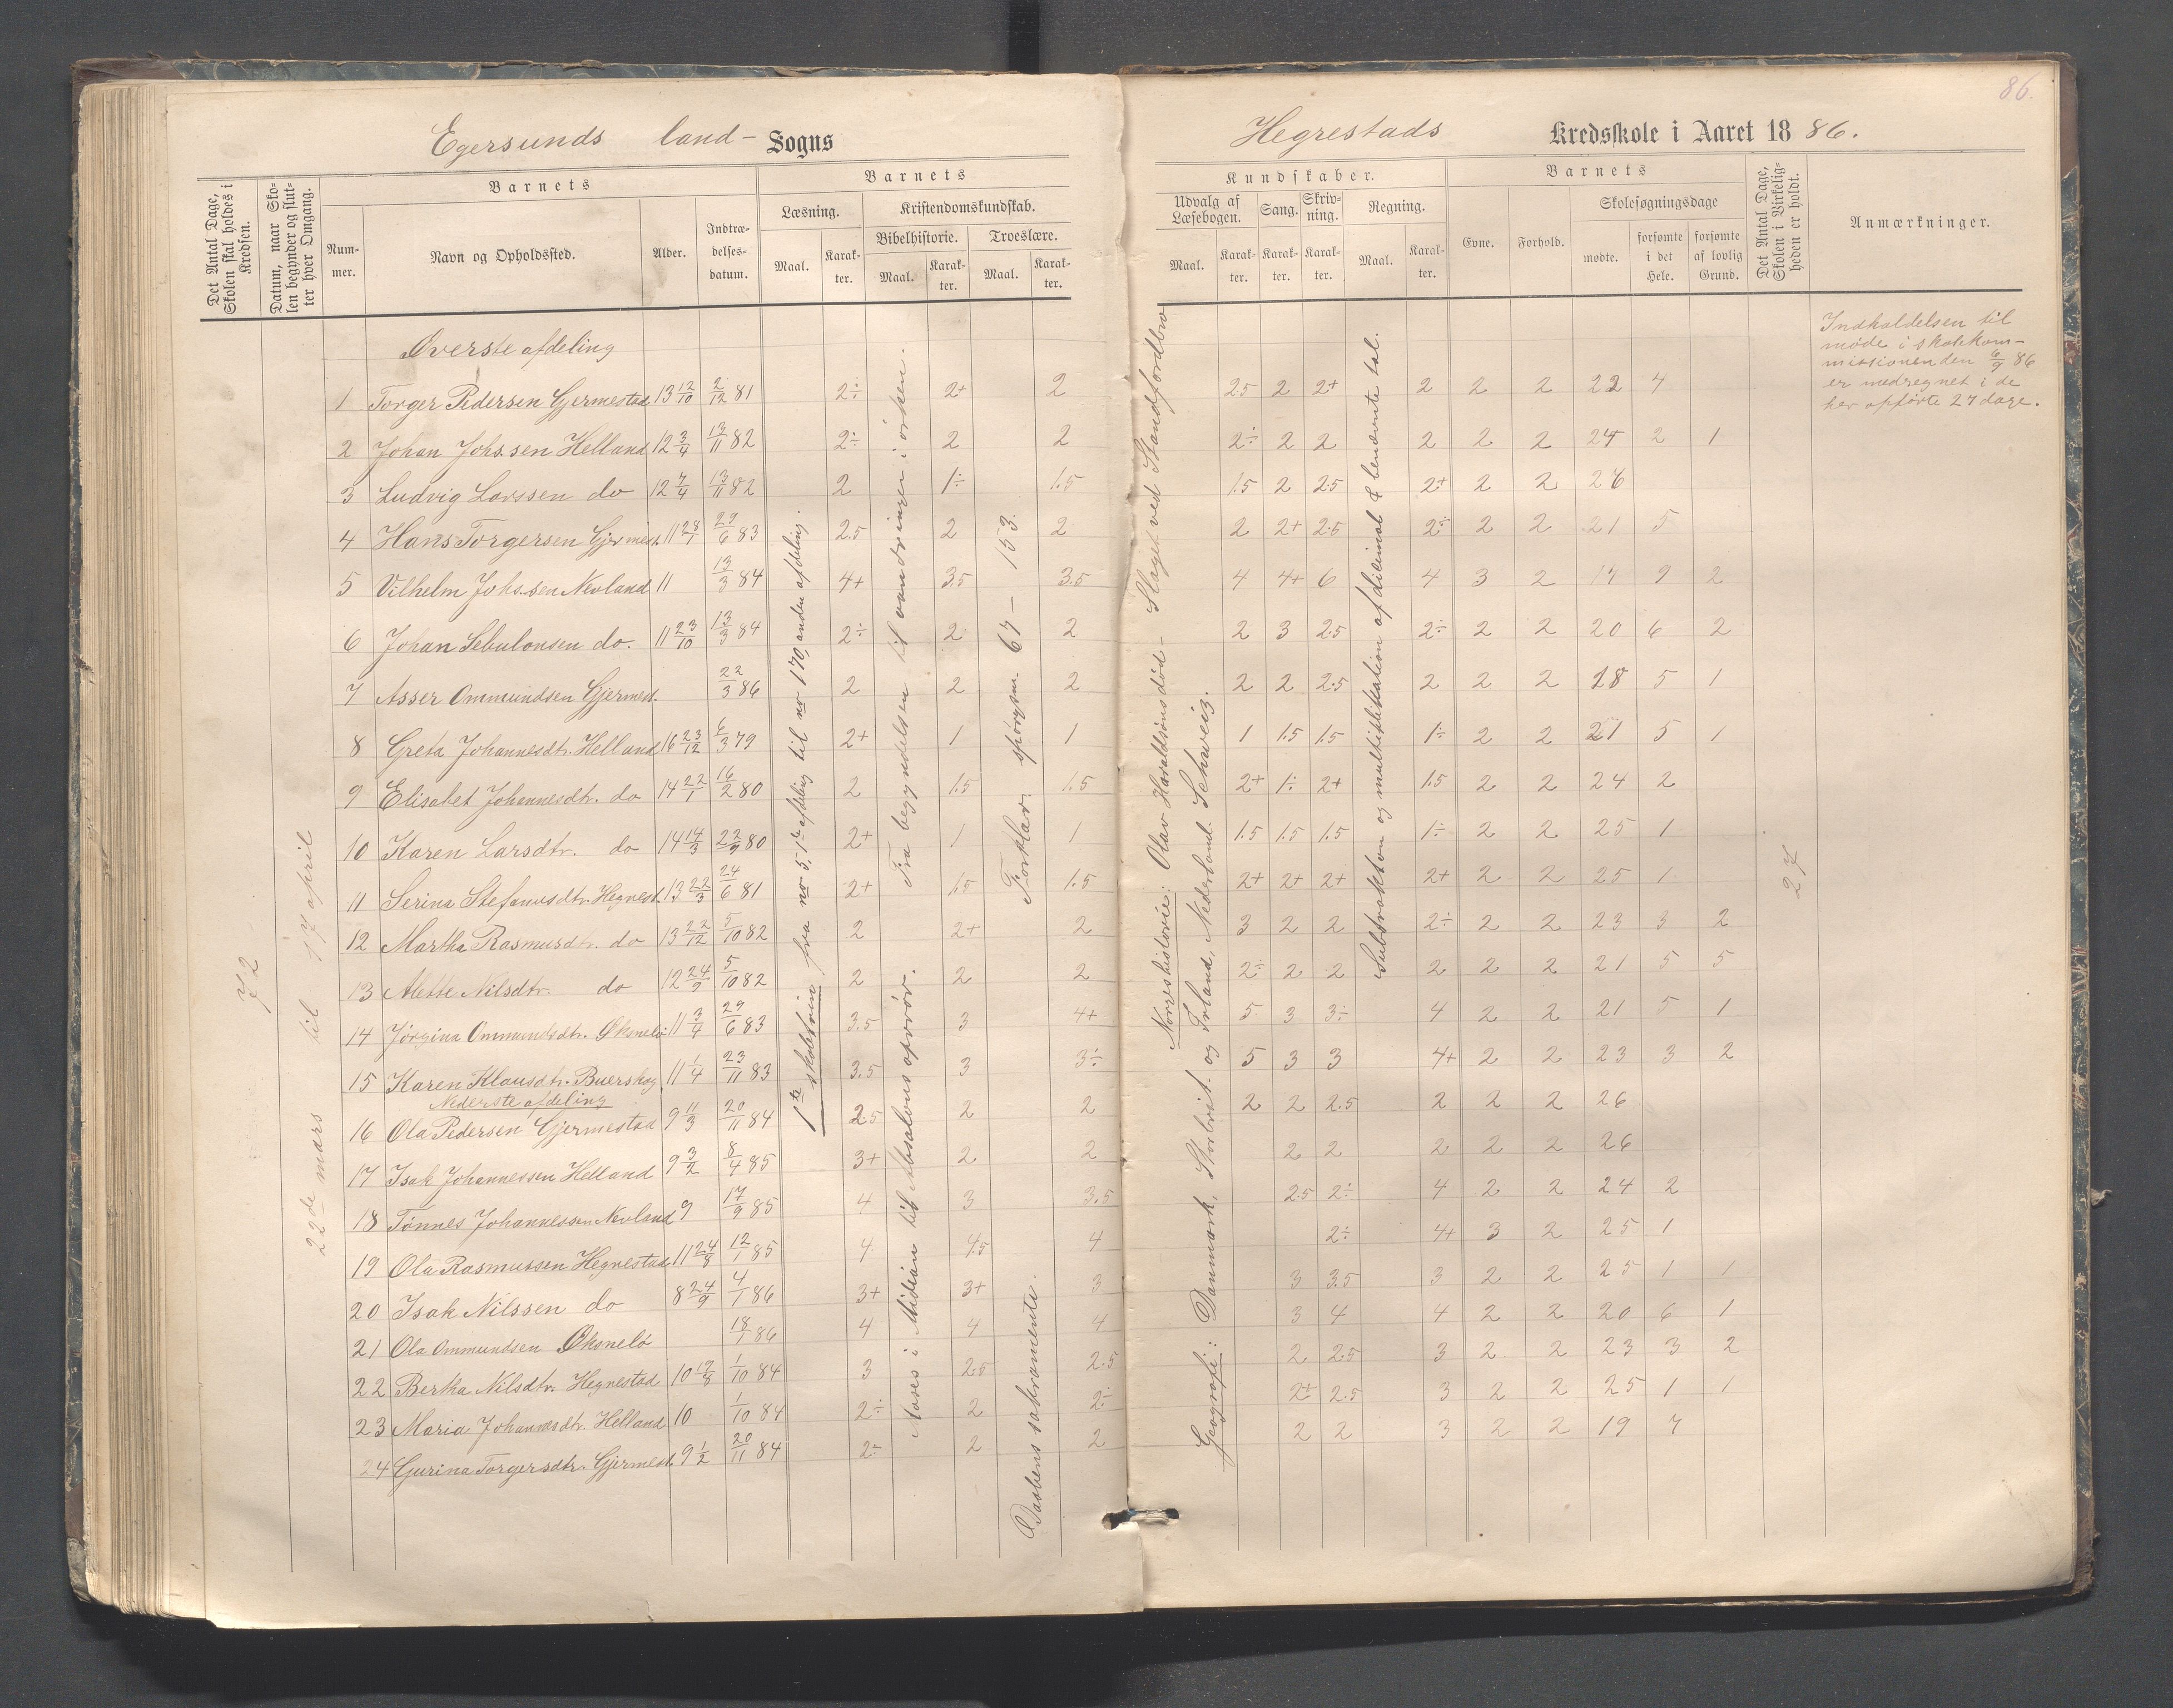 86.
Egersunds land- Sogns
Hegrestads Kredsskole i Aaret 1886.
Det Antal Dage, Skolen skal holdes i Kredsen.
Datum, naar Skolen begynder og slutter hver Omgang.
Barnets
Nummer.
Navn og Opholdssted.
Alder.
Indtrædelsesdatum.
Barnets
Læsning.
Maal.
Karakter.
Kristendomskundskab.
Bibelhistorie.
Maal.
Karakter.
Troeslære.
Maal.
Karakter.
Kundskaber.
Udvalg af Læsebogen.
Maal.
Karakter.
Sang.
Karakter.
Skrivning.
Karakter.
Regning.
Maal.
Karakter.
Barnets
Evne.
Forhold.
Skolesøgningsdage
mødte.
forsømte i det Hele.
forsømte af lovlig Grund.
Det Antal Dage, Skolen i Virkeligheden er holdt.
Anmærkninger.
Øverste afdeling
1 Torger Pedersen Gjermestad 13 12/10 2/12 81 2÷ 2+ 2 2.5 2 2+ 2 2 2 22 4
2 Johan Johs.sen Helland 12 3/4 13/11 82 2÷ 2 2 2÷ 2 2 2 2 2 24 2 1
3 Ludvig Larssen do 12 7/4 13/11 82 2 1÷ 1.5 1.5 2 2.5 2+ 2 2 26
4 Hans Torgersen Gjermest. 11 28/1 29/6 83 2.5 2 2 2 2+ 2.5 2÷ 2 2 21 5
5 Vilhelm Johs.sen Nevland 11 13/3 84 4+ 3.5 3.5 4 4+ 6 4 3 2 17 9 2
6 Johan Sebulonsen do. 11 23/10 13/3 84 2÷ 2 2 2 3 2.5 2÷ 2 2 20 6 2
7 Asser Ommundsen Gjermest. 22/3 86 2 2 2 2 2 2.5 2 2 2 18 5 1
8 Greta Johannesdtr. Helland 16 23/12 6/3 79 2+ 1 1 1 1.5 1.5 1÷ 2 2 21 5 1
9 Elisabet Johannesdtr. do 14 22/1 16/2 80 2 1.5 1.5 2+ 1÷ 2+ 1.5 2 2 24 2
10 Karen Larsdtr. do 14 14/3 22/9 80 2+ 1 1 1.5 1.5 1.5 1÷ 2 2 25 1
11 Serina Stefanusdtr. Hegrest. 13 22/3 24/6 81 2+ 1.5 1.5 2+ 2+ 2+ 2+ 2 2 25 1
12 Martha Rasmusdtr. do 13 22/12 5/10 82 2 2+ 2 3 2 2 2÷ 2 2 23 3 2
13 Alette Nilsdtr. do 12 24/9 5/10 82 2 2 2 2÷ 2 2 2 2 2 21 5 5
14 Jørgina Ommundsdtr. Øksnelø 11 3/4 29/6 83 3.5 3 4+ 5 3 3÷ 4 2 2 21 5 1
15 Karen Klausdtr. Buerskog 11 1/4 23/11 83 3.5 3 3÷ 5 3 3 4+ 2 2 23 3 2
Nederste afdeling
16 Ola Pedersen Gjermestad 9 11/3 20/11 84 2.5 2 2 2 2 2.5 2 2 2 26
17 Isak Johannessen Helland 9 3/2 8/4 85 3+ 2 2 2 2 2 2 2 26
18 Tønnes Johannessen Nevland 9 17/9 85 4 3 3.5 2.5 2÷ 4 2 2 24 2
19 Ola Rasmussen Hegrestad 11 24/8 12/1 85 4 4.5 4 2÷ 4+ 3 2 25 1
20 Isak Nilssen do 8 24/9 4/1 86 3+ 3+ 3 3 3.5 3 2 2 25 1 1
21 Ola Ommundsen Øksnelø 18/1 86 4 4 4 3 4 4 2 2 20 6 1
22 Bertha Nilsdtr. Hegrestad 10 19/8 1/10 84 3 2.5 2.5 2 2.5 3 2 2 23 3 2
23 Maria Johannesdtr. Helland 10 1/10 84 2÷ 2 2÷ 2+ 2.5 3 2 2 25 1 1
24 Gurina Torgersdtr. Gjermest. 9 1/2 20/11 84 2÷ 2 2 2 2 3 2 2 19 7
72
22de mars til 17 april
1ste skoletrin fra no 5, 1ste afdeling til no 170, anden afdeling.
Fra begyndelsen til vandringen i ørken.
Moses i Midian til Absalons oprør.
Forklar. spørgsm. 67 – 153.
Daabens sakramente.
Norgeshistorie: Olav Haraldsøns død – Slaget ved Standfordbro
Geografi: Danmark, Storbrit. og Irland, Nederland. Schweiz.
Substraktion og multiplikation af decimal & benævnte tal.
27
Indkaldelsen til
møde i skolekom-
missionen den 6/9 86
er medregnet i de
her opførte 27 dage.